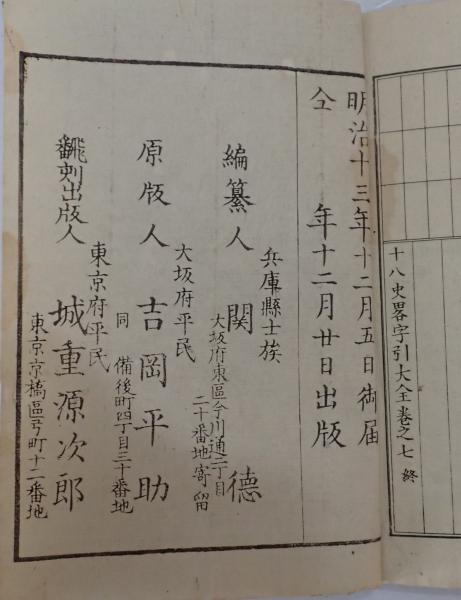 十八史畧字引大全卷之七 終
明治十三年十二月五日御届
仝 年十二月廿日出版
兵庫縣士族
編纂人 関 德
大坂府東區今川通二丁目
二十番地寄留
大坂府平民
原版人 吉岡平助
同 備後町四丁目三十番地
東京府平民
飜刻出版人 城重源次郎
東京京橋區弓町十二番地